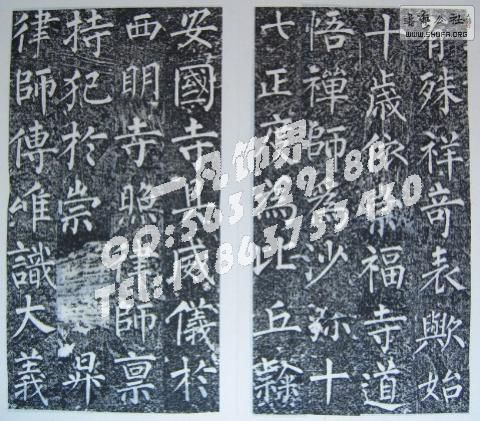 有殊祥奇表歟始
十歲依崇福寺道
悟禪師為沙弥十
七正度為比丘隸
安國寺具威儀於
西明寺照律師稟
持犯於崇昇
律師傳唯識大義
書法公社
WWW.SHUFA.ORG
一凡饰界
QQ:563729188
TEL:13863755460